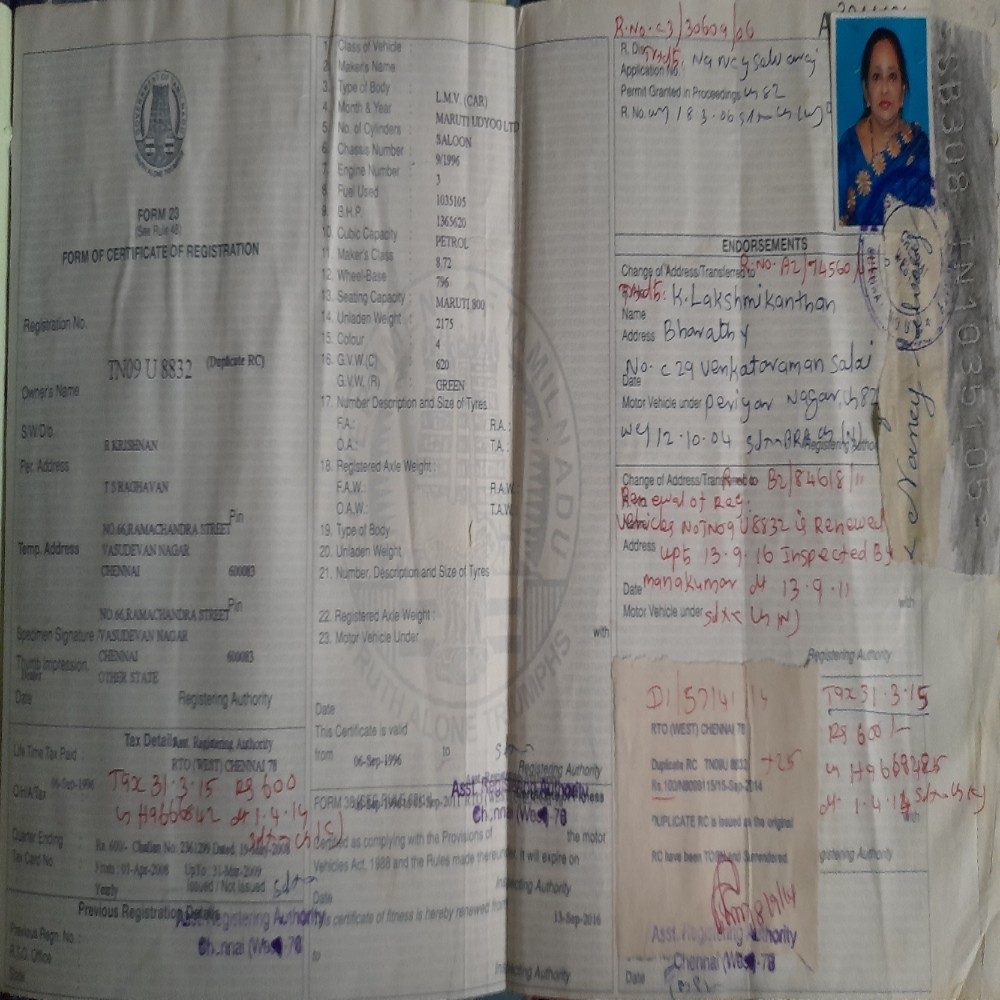 FORM 23
(See Rule 48)
FORM OF CERTIFICATE OF REGISTRATION
Registration No.
TN09 U 8832 (Duplicate RC)
Owner's Name
R KRISHNAN
S/W/D/o.
T S RAGHAVAN
Per. Address
NO.66,RAMACHANDRA STREET
Pin
VASUDEVAN NAGAR
CHENNAI 600083
Temp. Address
NO.66,RAMACHANDRA STREET
Pin
VASUDEVAN NAGAR
CHENNAI 600083
Specimen Signature /
Thumb Impression.
OTHER STATE
Date Registering Authority
Tax Details
Asst. Registering Authority
RTO (WEST) CHENNAI 78
Life Time Tax Paid :
06-Sep-1996
Tax 31.3.15 Rs 600
H9666842 dt 1.4.14
Quarter Ending
Rs. 600/- Challan No: 236/299 Dated: 19-May-2008
Tax Paid No.
From : 01-Apr-2008 UpTo : 31-Mar-2009
Yearly Issued / Not issued
Previous Registration Details
Asst. Registering Authority
Previous Regn. No. :
Chennai (West)-78
R.T.O. Office
Date
1. Class of Vehicle :
2. Maker's Name
3. Type of Body
4. Month & Year
5. No. of Cylinders
6. Chassis Number
7. Engine Number
8. Fuel Used
9. B.H.P.
10. Cubic Capacity
11. Maker's Class
12. Wheel-Base
13. Seating Capacity :
14. Unladen Weight :
15. Colour
16. G.V.W.(C)
G.V.W. (R)
L.M.V. (CAR)
MARUTI UDYOG LTD
SALOON
9/1996
3
1035105
1365620
PETROL
8.72
796
MARUTI 800
2175
4
620
GREEN
17. Number Description and Size of Tyres
F.A.: R.A.:
O.A.: T.A.:
18. Registered Axle Weight
F.A.W.: R.A.W.
O.A.W.: T.A.W.
19. Type of Body
20. Unladen Weight
21. Number, Description and Size of Tyres
22. Registered Axle Weight :
23. Motor Vehicle Under with
TAMIL NADU
TRUTH ALONE TRIUMPHS
Date
This Certificate is valid
from 06-Sep-1996 to
Registering Authority
Asst. Registering Authority
Chennai (West)-78
FORM 38
the motor
as complying with the Provisions of
Vehicles Act, 1988 and the Rules made thereunder. It will expire on
Date Inspecting Authority
certificate of fitness is hereby renewed from
13-Sep-2016
to
Inspecting Authority
R.No. C3/30609/06
Application No.
Nancy Selvaraj
Permit Granted in Proceedings
82
R. No. 18.3.06
ENDORSEMENTS
Change of Address/Transferred to
R.No. A2/94560/
Name K. Lakshmikanthan
Address Bharathy
No. C 29 Venkataraman Salai
Date
Motor Vehicle under Periyar Nagar, 82
12.10.04
Registering Authority
Change of Address/Transferred to
B2/84618/11
Renewal of Reg:
Vehicles No TN09 U 8832 is Renewed
Address upto 13.9.16 Inspected By
Date manakumar dt 13.9.11
with
Motor Vehicle under
Registering Authority
D1/57141/14
RTO (WEST) CHENNAI 78
Duplicate RC TN09U 8832 +25
Rs.100/NB099115/15-Sep-2014
DUPLICATE RC is issued as the original
RC have been TORN and Surrendered
Asst. Registering Authority
Chennai (West)-78
Date
Tax 31.3.15
Rs 600/-
H9668425
dt. 1.4.14
with
Registering Authority
Inspecting Authority
SB308 IN1035105
Nancy